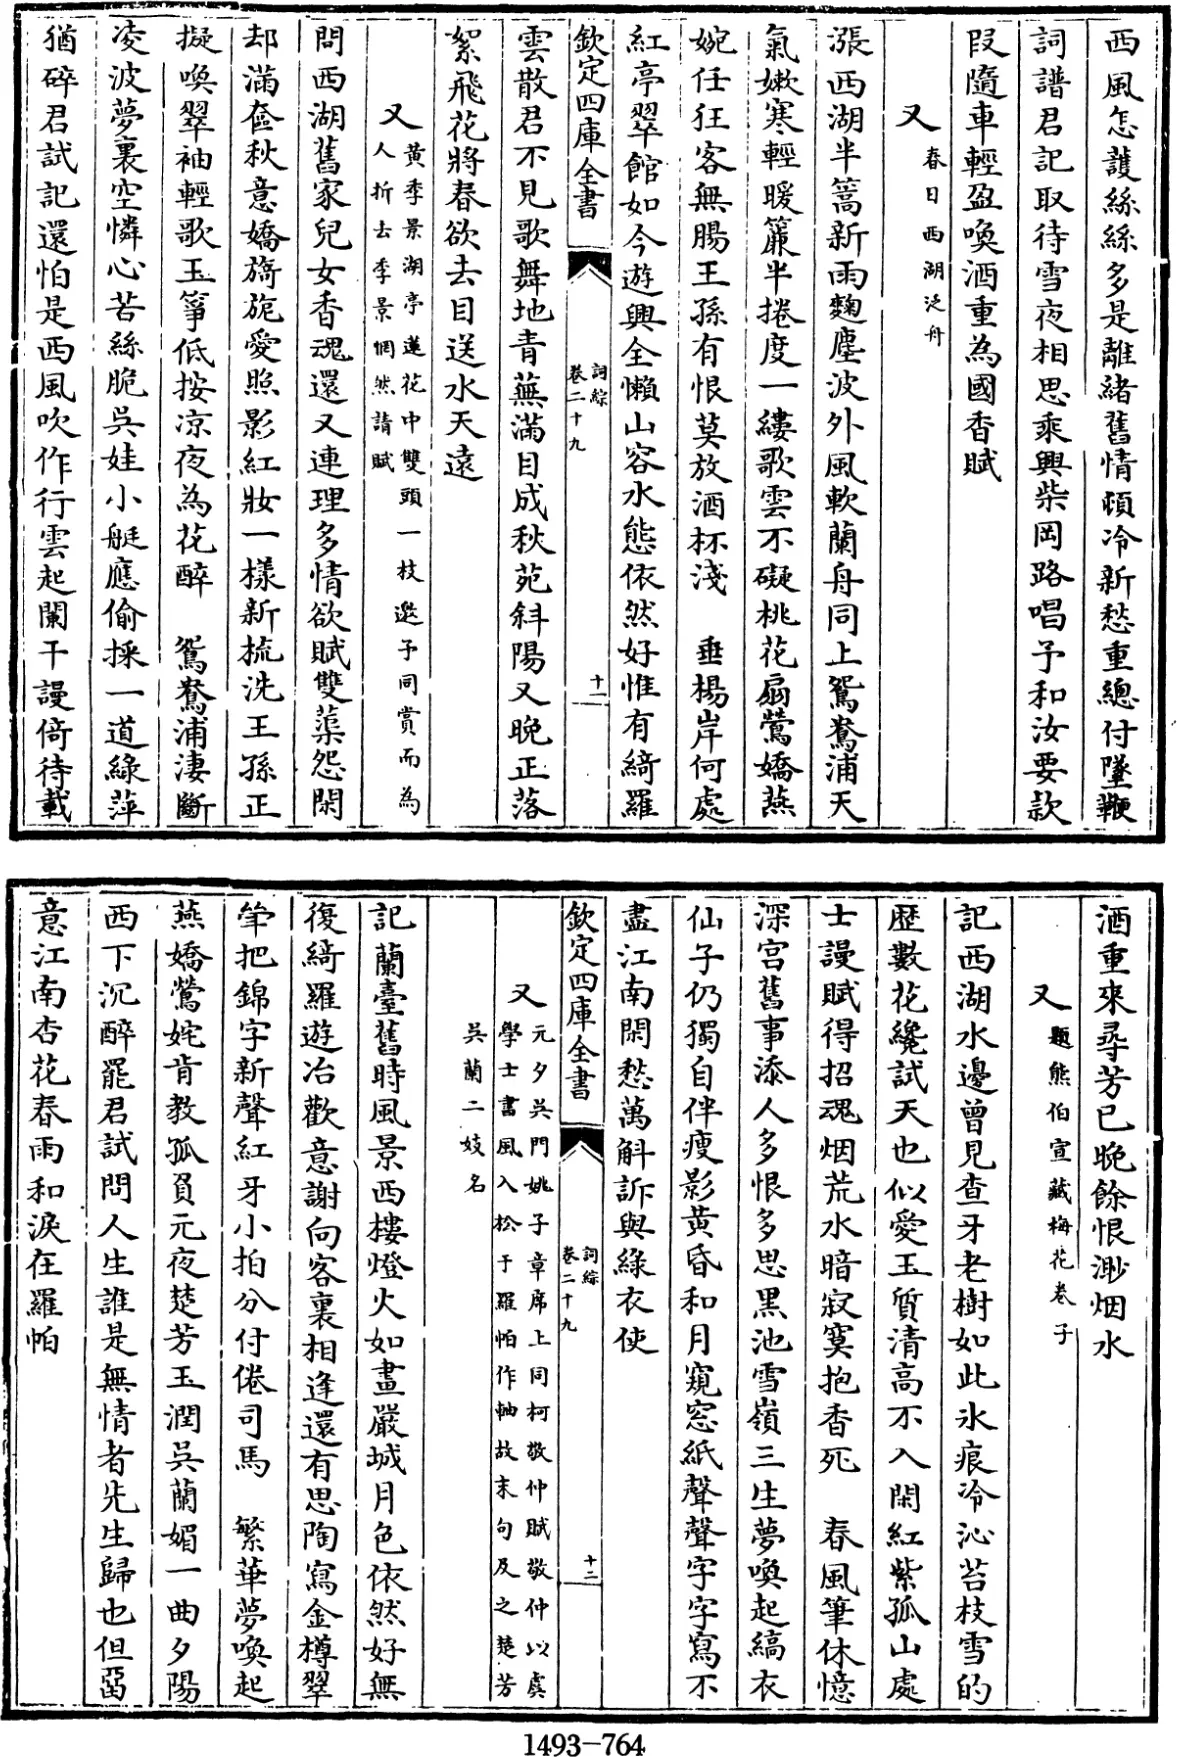 西風怎䕶絲絲多是離緒舊情頓冷新愁重總付墜鞭
詞譜君記取待雪夜相思乘興柴岡路唱予和汝要款
叚隨車輕盈喚酒重為國香賦
又春日西湖泛舟
漲西湖半篙新雨麴塵波外風軟蘭舟同上鴛鴦浦天
氣嫩寒輕暖簾半捲度一縷歌雲不礙桃花扇鶯嬌燕
婉任狂客無腸王孫有恨莫放酒杯淺　垂楊岸何處
紅亭翠館如今遊興全懶山容水態依然好惟有綺羅
欽定四庫全書
詞綜
卷二十九
十一
雲散君不見歌舞地青蕪滿目成秋苑斜陽又晚正落
絮飛花將春欲去目送水天遠
又
黃季景湖亭蓮花中雙頭一枝邀予同賞而為
人折去季景惘然請賦
問西湖舊家兒女香魂還又連理多情欲賦雙蕖怨閑
却滿奩秋意嬌旖旎愛照影紅妝一樣新梳洗王孫正
擬喚翠袖輕歌玉箏低按凉夜為花醉　鴛鴦浦淒斷
凌波夢裏空憐心苦絲脆吳娃小艇應偷採一道綠萍
猶碎君試記還怕是西風吹作行雲起闌干謾倚待載
酒重來尋芳已晩餘恨渺烟水
又題熊伯宣藏梅花卷子
記西湖水邊曾見查牙老樹如此氷痕冷沁苔枝雪的
歷數花纔試天也似愛玉質清高不入閑紅紫孤山處
士謾賦得招魂烟荒水暗寂寞抱香死　春風筆休憶
深宫舊事添人多恨多思黑池雪嶺三生夢喚起縞衣
仙子仍獨自伴瘦影黃昏和月窺窓紙聲聲字字寫不
盡江南閑愁萬斛訴與綠衣使
欽定四庫全書
詞綜
卷二十九
十二
又
元夕吳門姚子章席上同柯敬仲賦敬仲以虞
學士書風入松于羅帕作軸故末句及之楚芳
吳蘭二妓名
記蘭臺舊時風景西樓燈火如畫嚴城月色依然好無
復綺羅遊冶歡意謝向客裏相逢還有思陶寫金樽翠
筦把錦字新聲紅牙小拍分付倦司馬　繁華夢喚起
燕嬌鶯姹肯教孤負元夜楚芳玉潤吳蘭媚一曲夕陽
西下沉醉罷君試問人生誰是無情者先生歸也但畱
意江南杏花春雨和淚在羅帕
1493-764